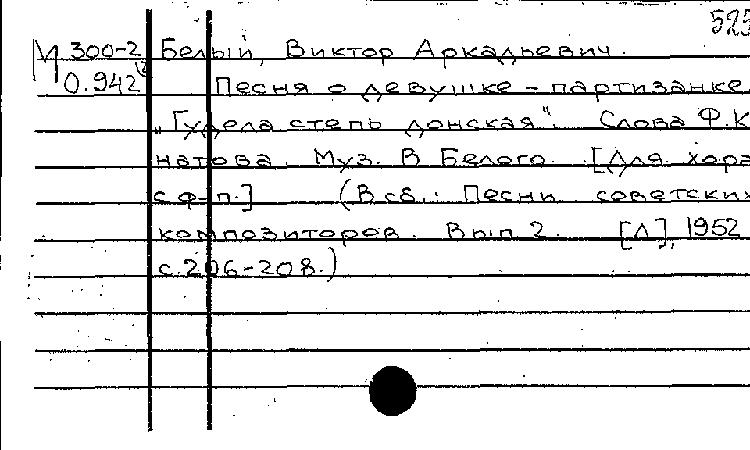 525
М 300-2 Белый, Виктор Аркадьевич.
0.942 Песня о девушке - партизанке.
„Гудела степь донская". Слова Ф. К
натова. Муз. В Белого. [Для хора
с ф-п.] (В сб.: Песни советских
композиторов. Вып 2. [Л], 1952
с. 206-208.)